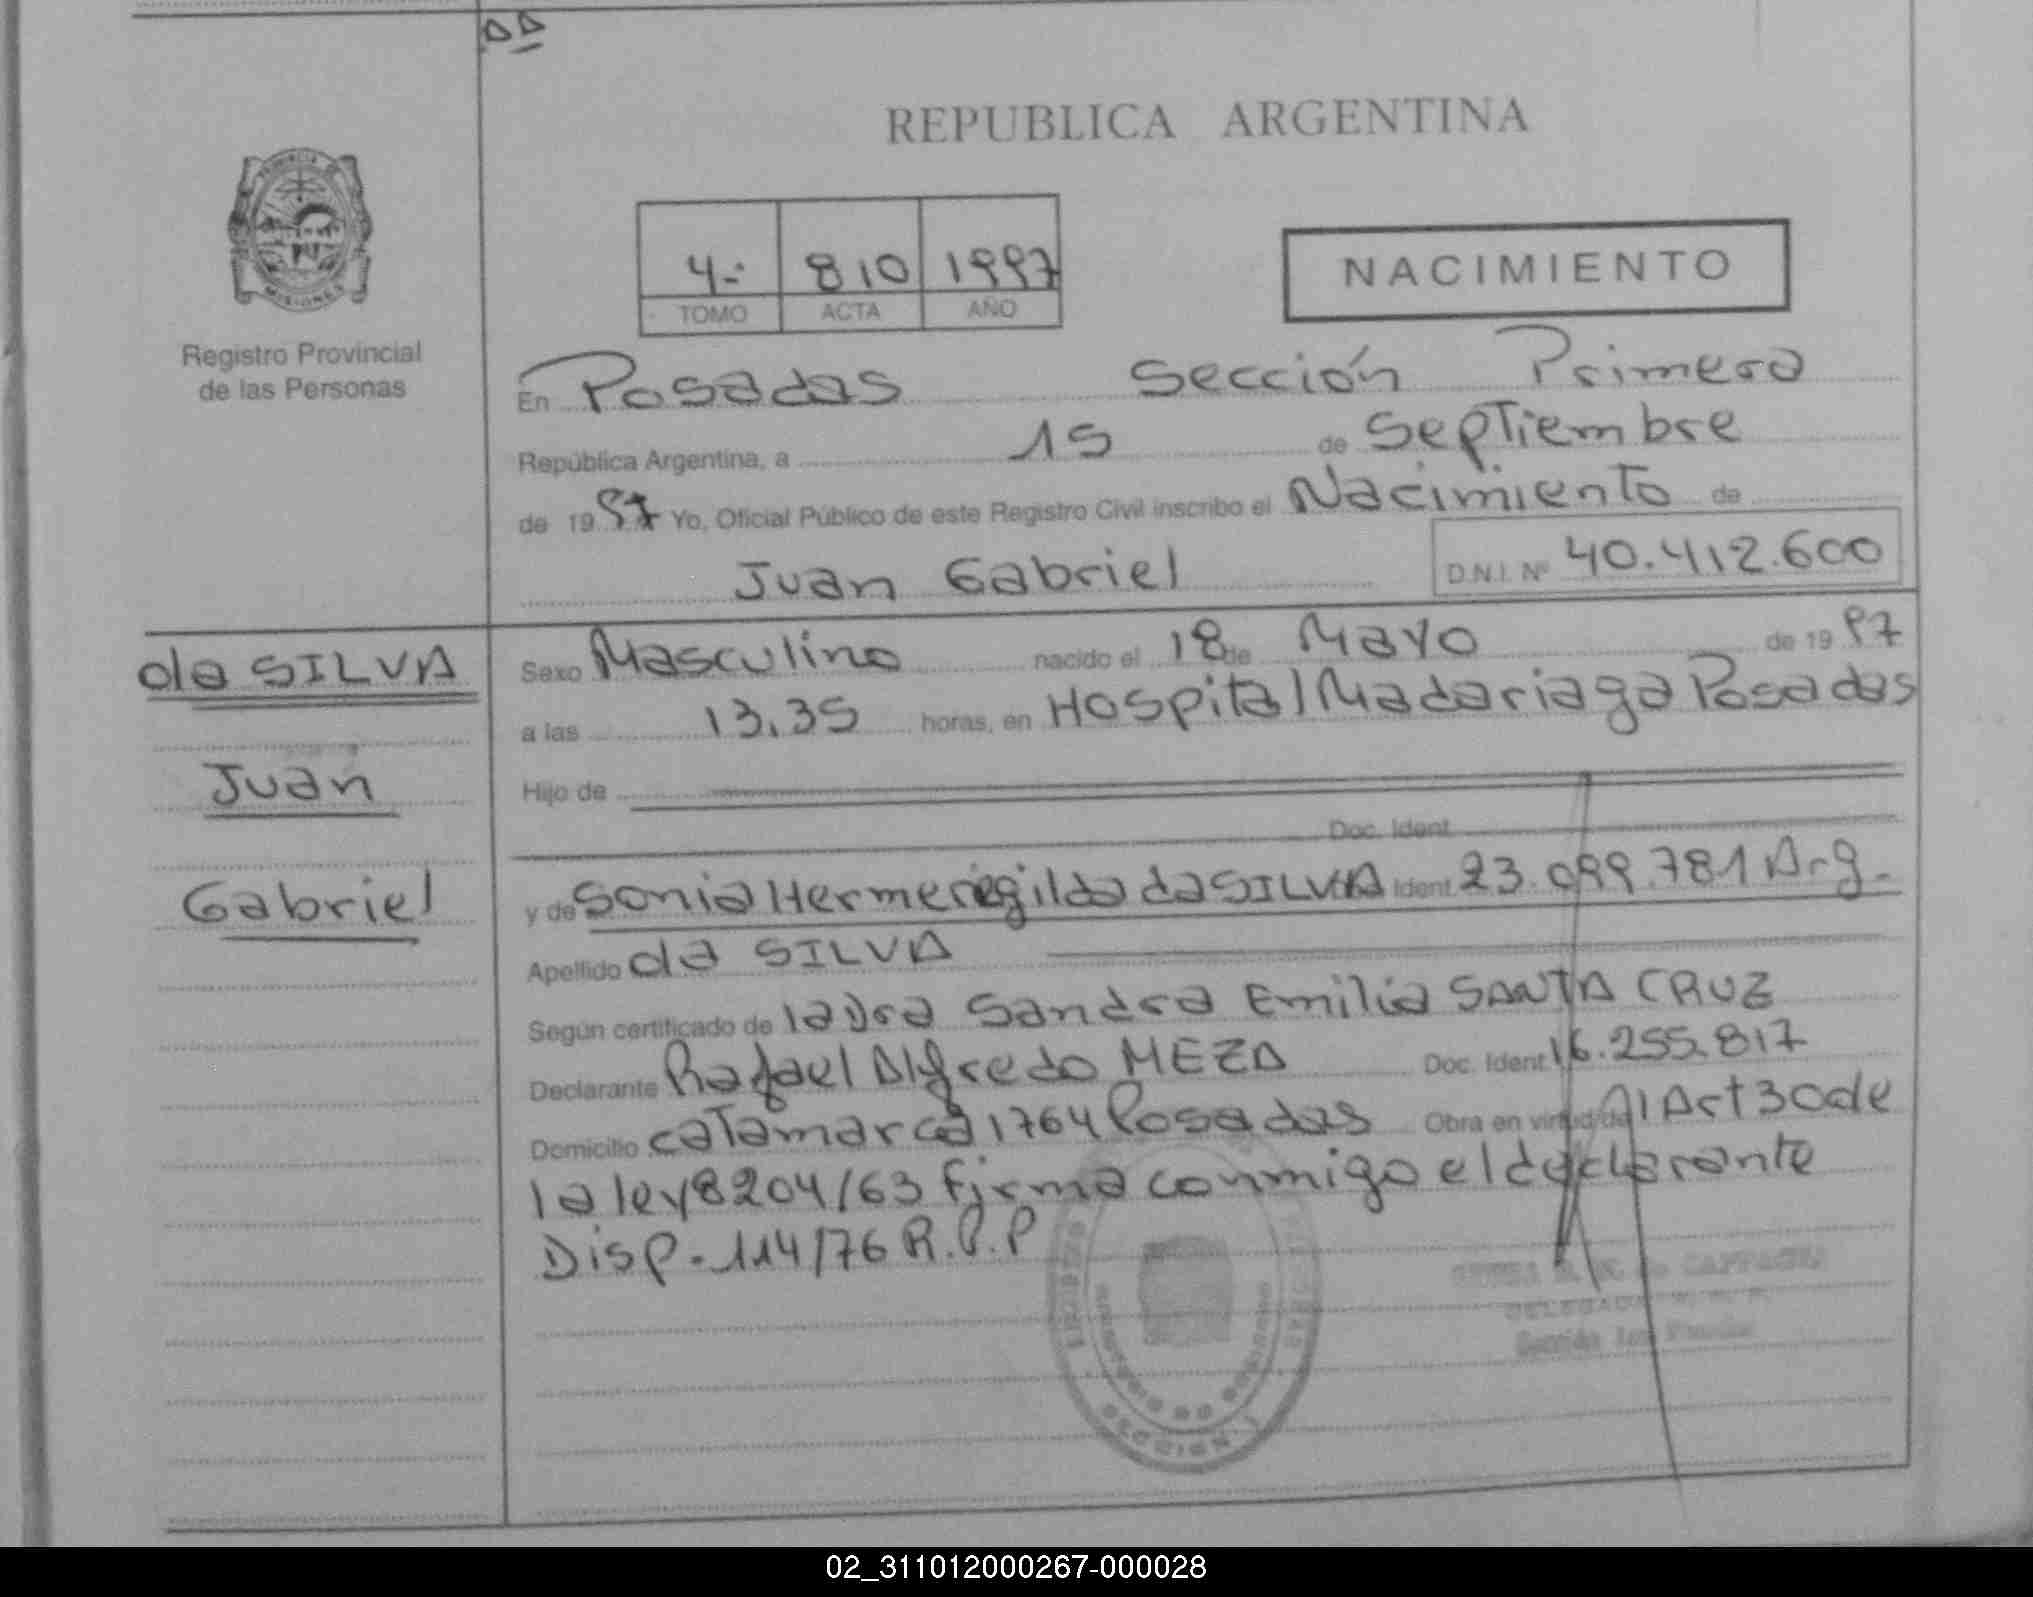 REPUBLICA ARGENTINA
4-
810
1997
TOMO
ACTA
AÑO
NACIMIENTO
MISIONES
Registro Provincial
de las Personas
En Posadas Sección Primera
República Argentina, a 15 de Septiembre
de 1997 Yo, Oficial Público de este Registro Civil inscribo el Nacimiento de
Juan Gabriel D.N.I. Nº 40.412.600
da SILVA
Juan
Gabriel
Sexo Masculino nacido el 18 de Mayo de 1997
a las 13,35 horas, en Hospital Madariaga Posadas
Hijo de
Doc. Ident.
y de Sonia Hermenegilda da SILVA Ident. 23.099.781 Arg.
Apellido da SILVA
Según certificado de la Dra Sandra Emilia SANTA CRUZ
Declarante Rafael Alfredo MEZA Doc. Ident. 16.255.817
Domicilio Catamarca 1764 Posadas Obra en virtud de Al Art 30 de
la ley 8204/63 firma conmigo el declarante
Disp. 114/76 R.P.P
SECCION
02_311012000267-000028